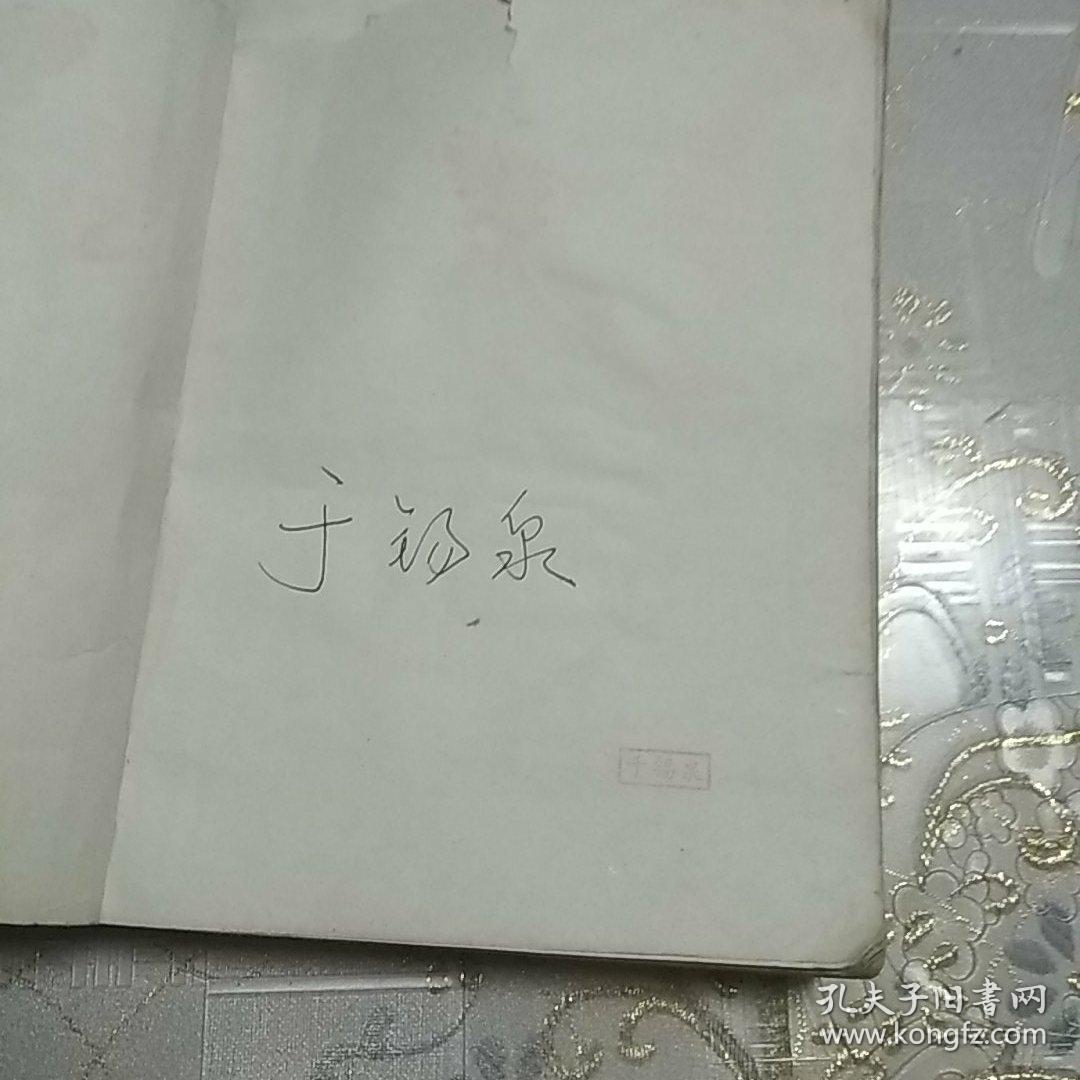 于锡泉
于锡泉
孔夫子旧書网
www.kongfz.com